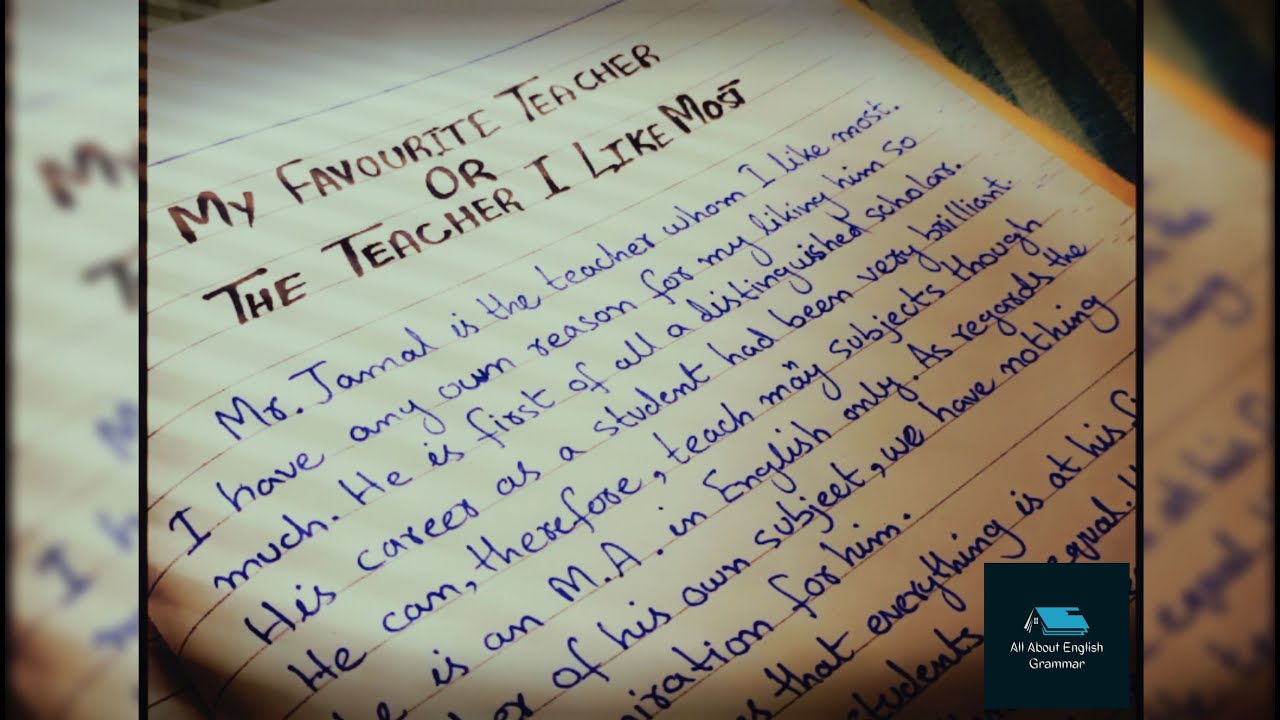 My FAVOURITE TEACHER
OR
THE TEACHER I LIKE MOST
Mr. Jamal is the teacher whom I like most.
I have any own reason for my liking him so
much. He is first of all a distinguished scholar.
His career as a student had been very brilliant.
He can, therefore, teach many subjects though
is an M.A. in English only. As regards the
of his own subject, we have nothing
for him.
that everything is at his
students equal.
All About English
Grammar